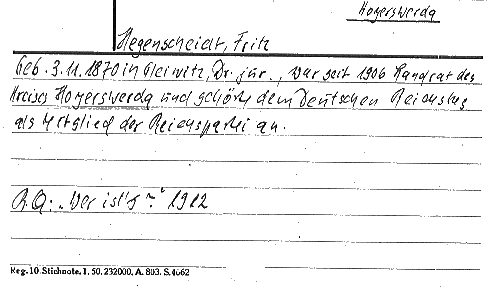 Hoyerswerda
Hegenscheidt, Fritz
Geb. 3.11.1870 in Gleiwitz, Dr. jur., war seit 1906 Landrat des
Kreises Hoyerswerda und gehörte dem Deutschen Reichstag
als Mitglied der Reichspartei an.
R.Q: „Wer ist's?" 1912
Reg. 10. Stichnote. 1. 50. 232000. A. 803. S. 4662